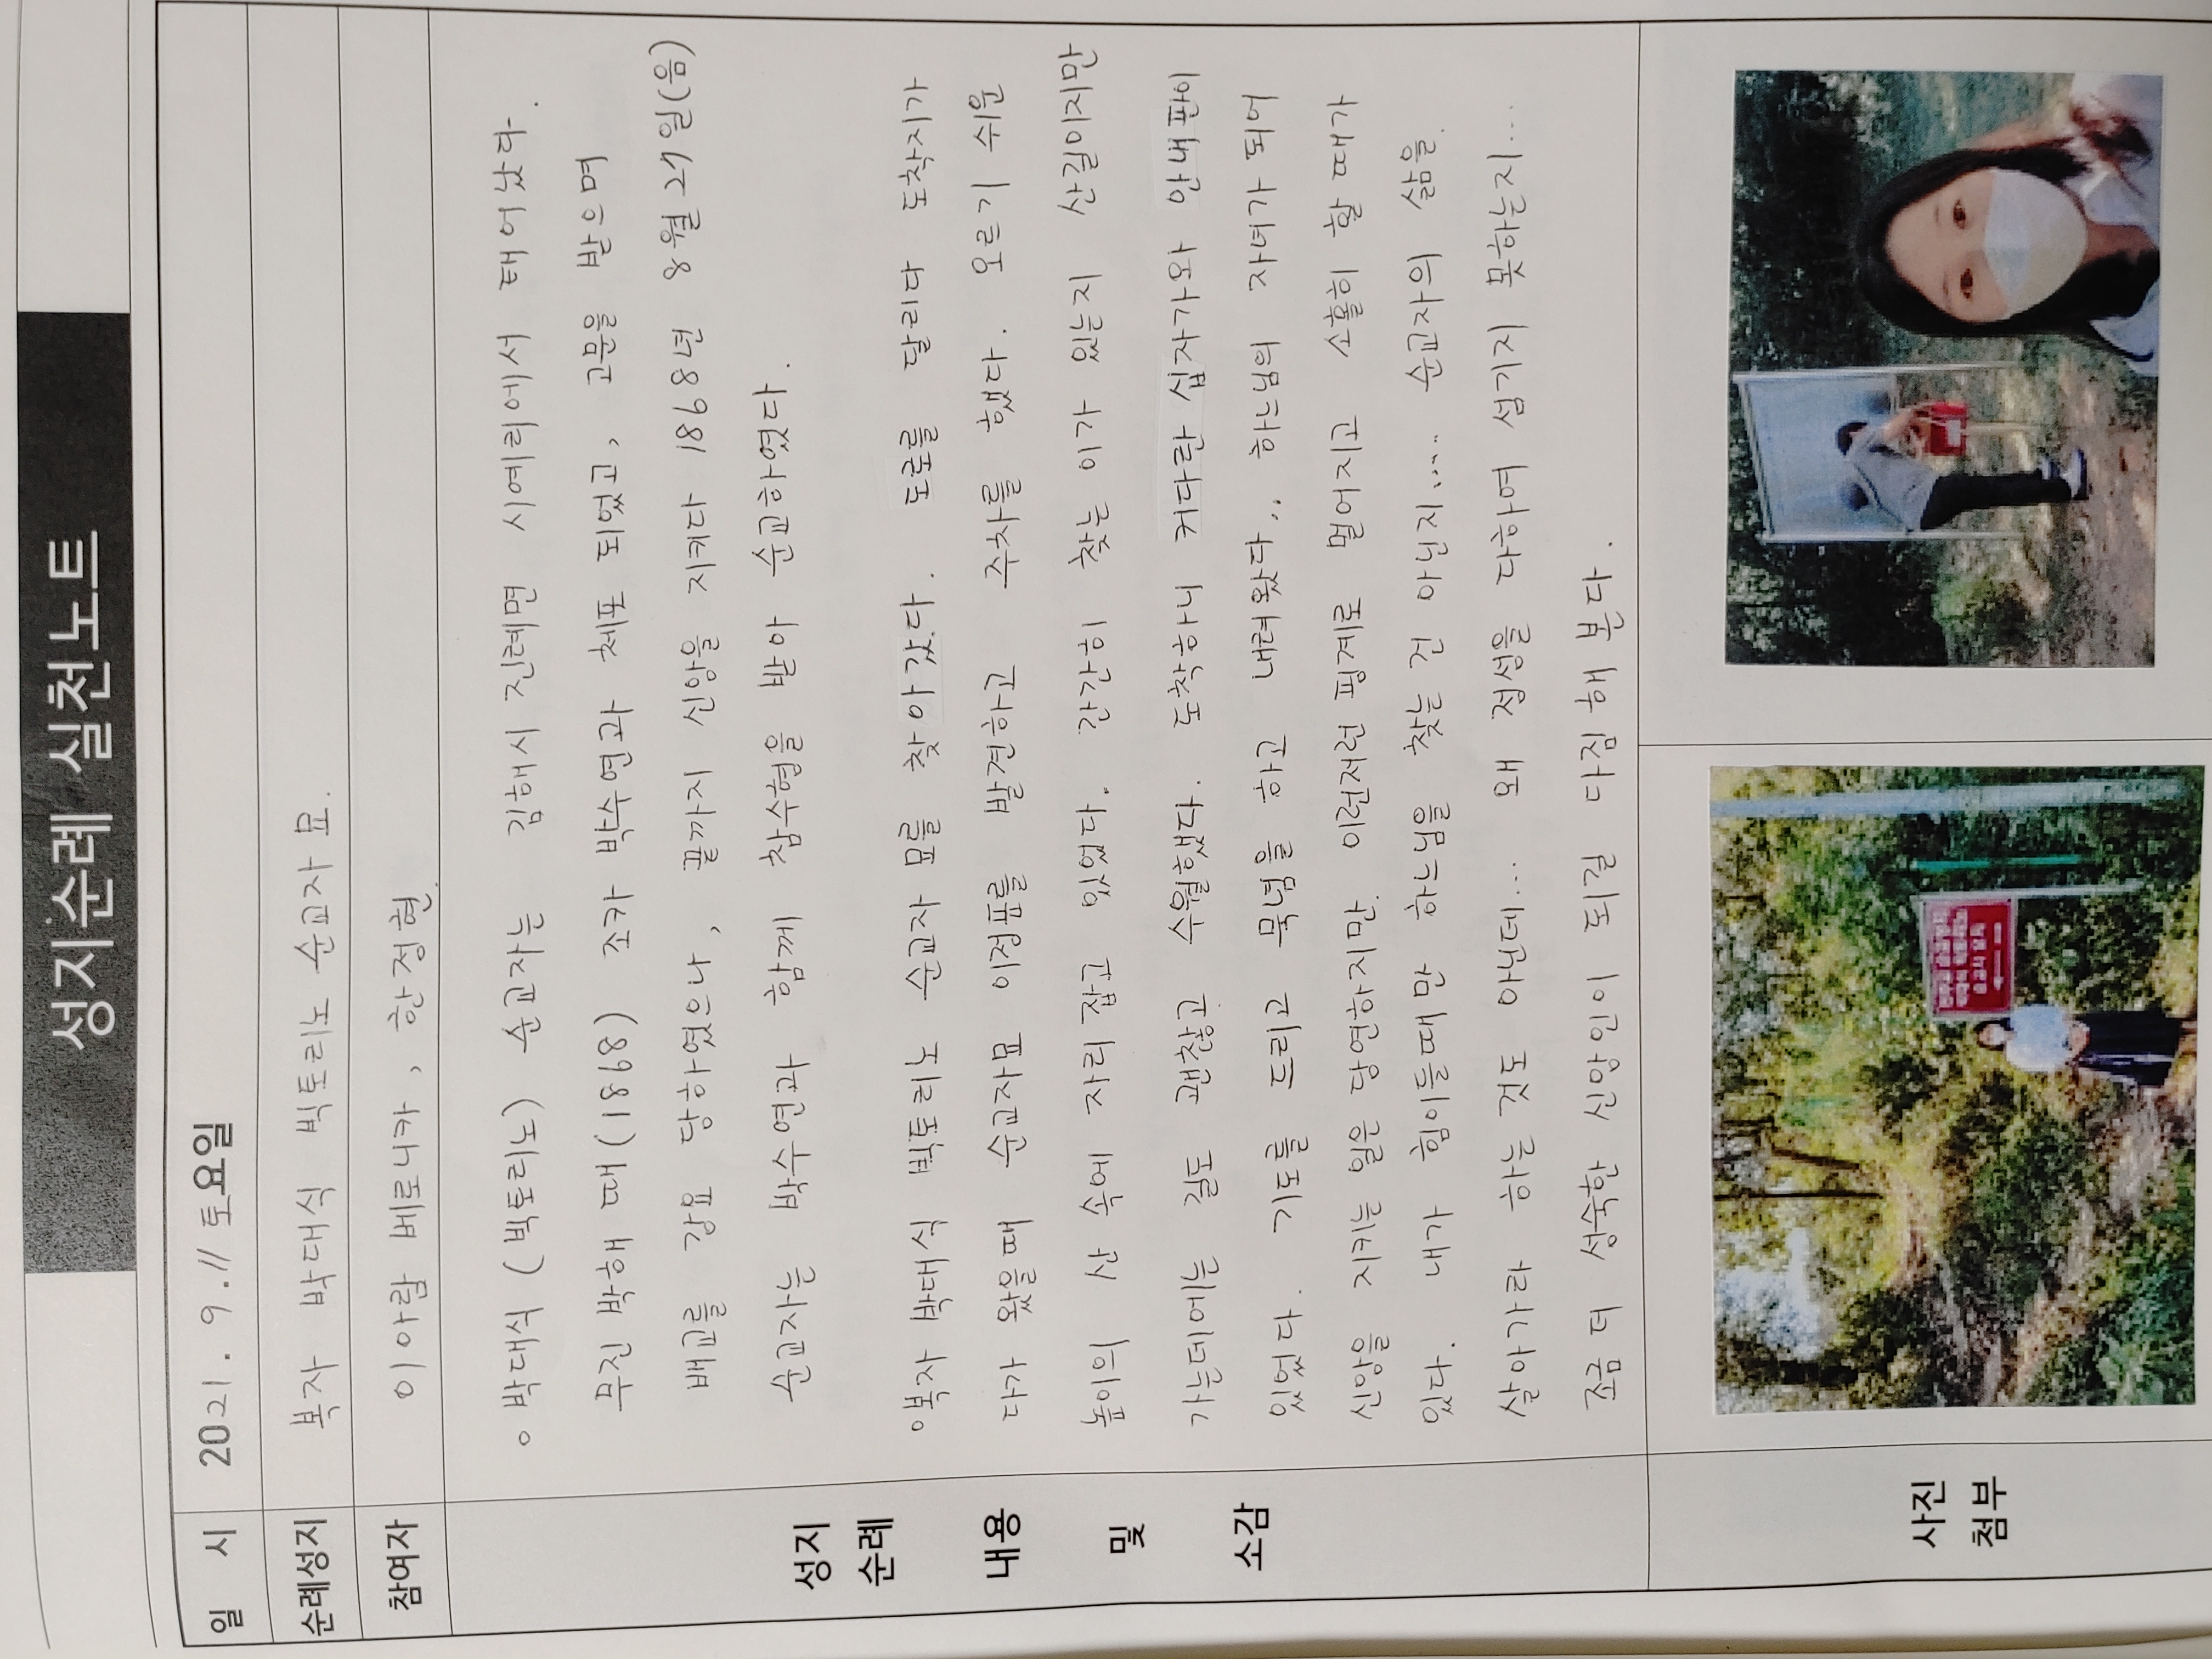 성지순례 실천노트
일 시 2021. 9. 11 토요일
순례성지 복자 박대식 빅토리노 순교자 묘.
참여자 이아람 베로니카, 한정현.
성지
순례
내용
및
소감
○ 박대식 (빅토리노) 순교자는 김해시 진례면 시예리에서 태어났다.
무진 박해 때 (1868) 조카 박수연과 체포 되었고, 고문을 받으며
배교를 강요 당하였으나, 끝까지 신앙을 지키다 1868년 8월 27일(음)
순교자는 박수연과 함께 참수형을 받아 순교하였다.
○복자 박대식 빅토리노 순교자 묘를 찾아갔다. 도로를 달리다 도착지가
다가 왔을때 순교자묘 이정표를 발견하고 주차를 했다. 오르기 쉬운
높이의 산 속에 자리 잡고 있었다. 간간히 찾는 이가 있는지 산길이지만
가는데에는 길도 괜찮고 수월했다. 도착하니 커다란 십자가와 안내판이
있었다. 기도를 드리고 묵념을 하고 내려왔다.. 하느님의 자녀가 되어
신앙을 지키는 일은 당연하지만. 이런저런 핑계로 멀어지고 소홀히 할 때가
있다. 내가 힘이들때만 하느님을 찾는 건 아닌지.... 순교자의 삶을.
살아가라 하는 것도 아닌데... 왜 정성을 다하여 섬기지 못하는지...
조금 더 성숙한 신앙인이 되길 다짐해 본다.
사진
첨부